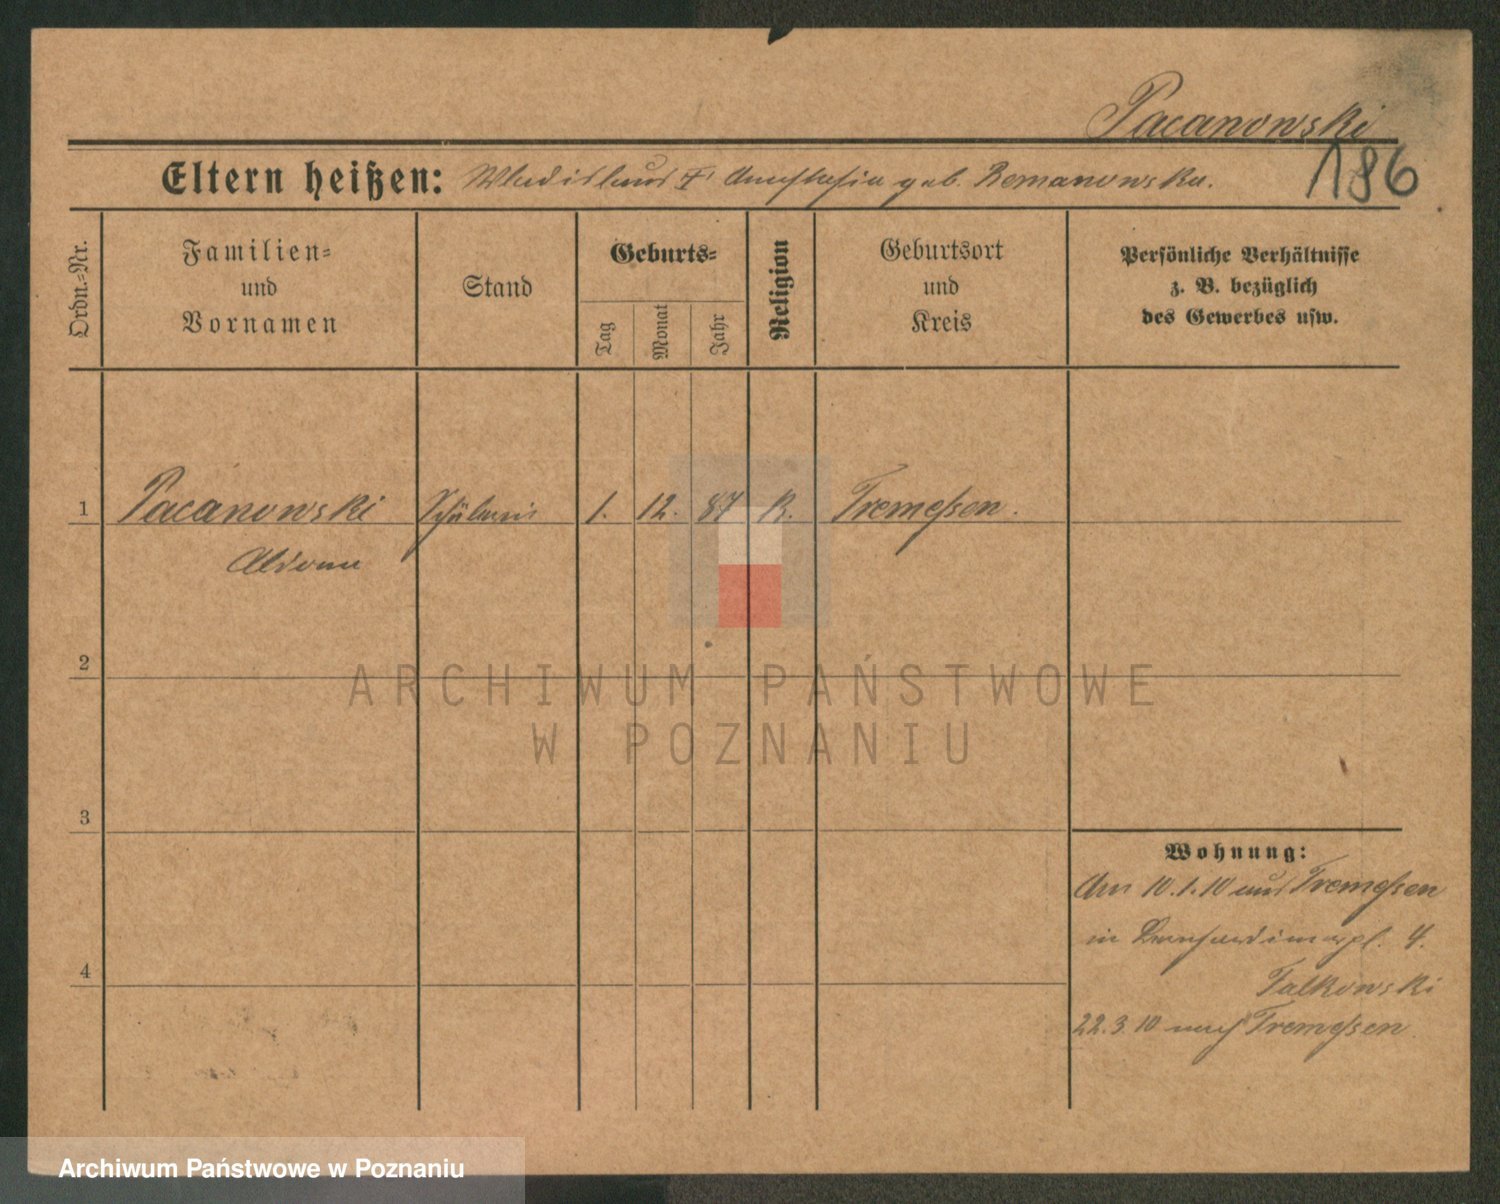 Pacanowski
186
Eltern heißen: Wladislaus & Anastasia geb. Romanowska.
Ordn.-Nr.
Familien-
und
Vornamen
Stand
Geburts-
Tag
Monat
Jahr
Religion
Geburtsort
und
Kreis
Persönliche Verhältnisse
z. B. bezüglich
des Gewerbes usw.
1 Pacanowski Schülerin 1. 12. 87 K. Tremessen.
Aldona
2
ARCHIWUM PAŃSTWOWE
W POZNANIU
3
Wohnung:
Am 10.1.10 aus Tremessen
in Bernhardinerpl. 4.
4
Falkowski
22.3.10 nach Tremessen
Archiwum Państwowe w Poznaniu